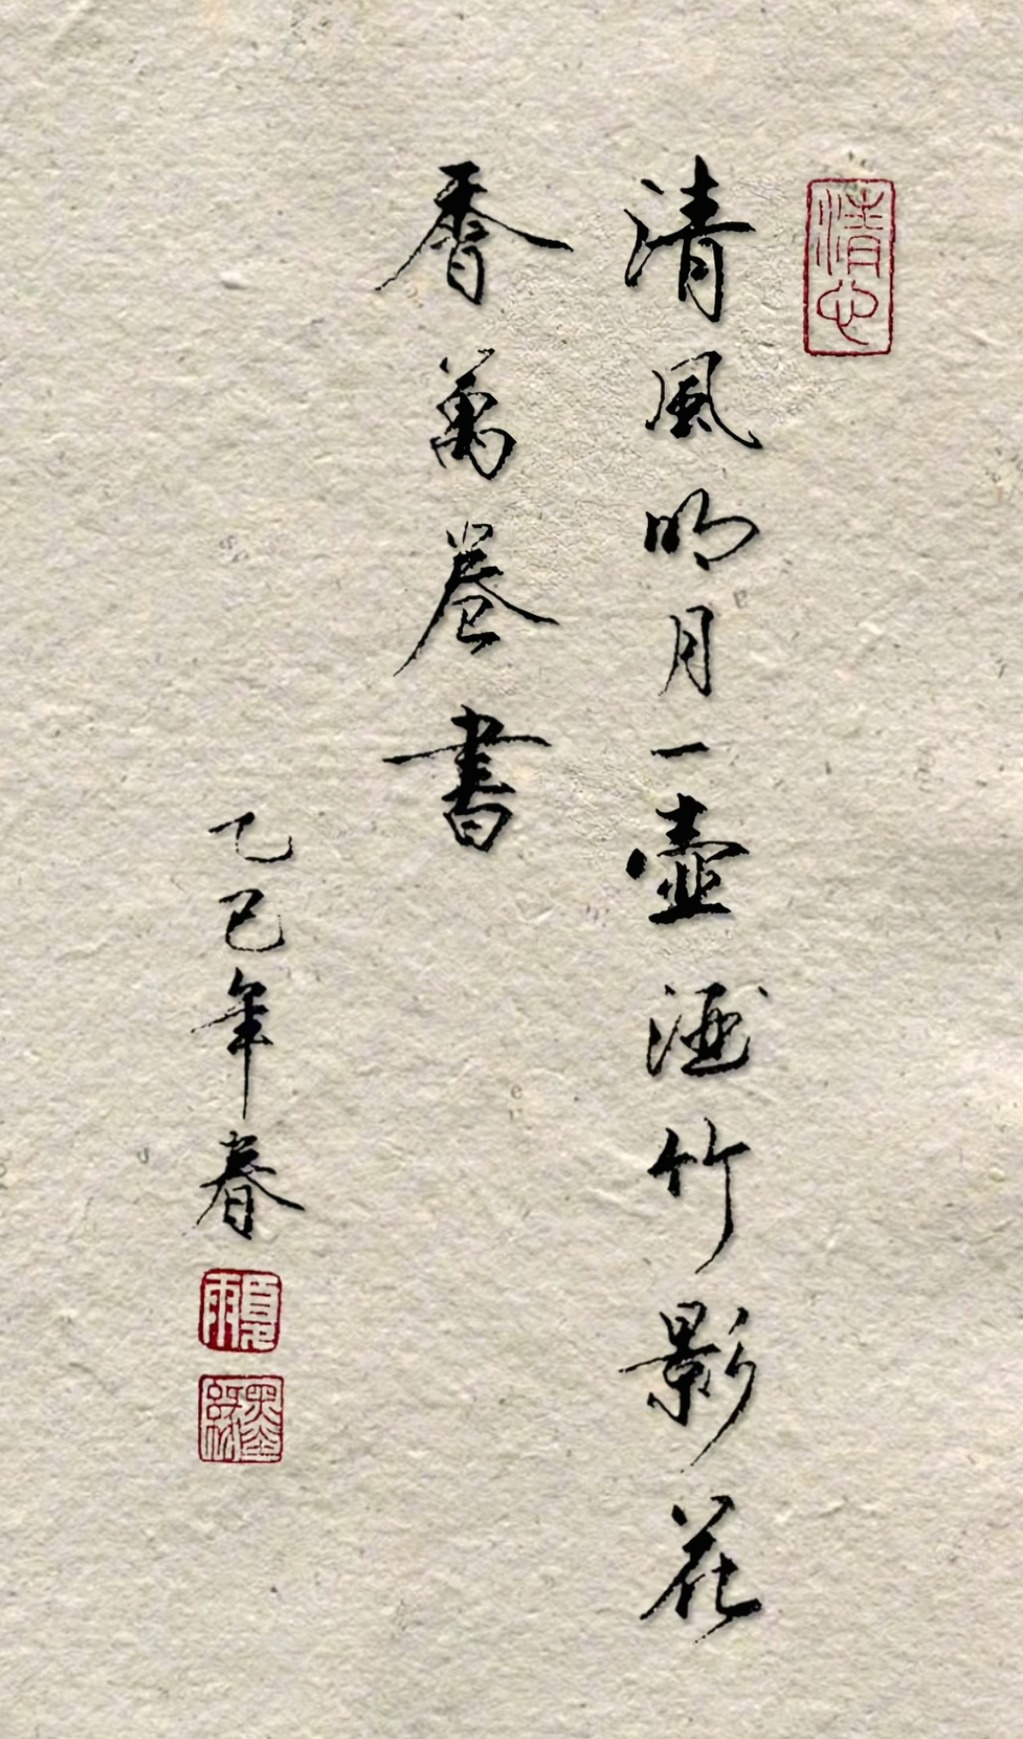 清心
清風明月一壺酒竹影花
香萬卷書
乙巳年春